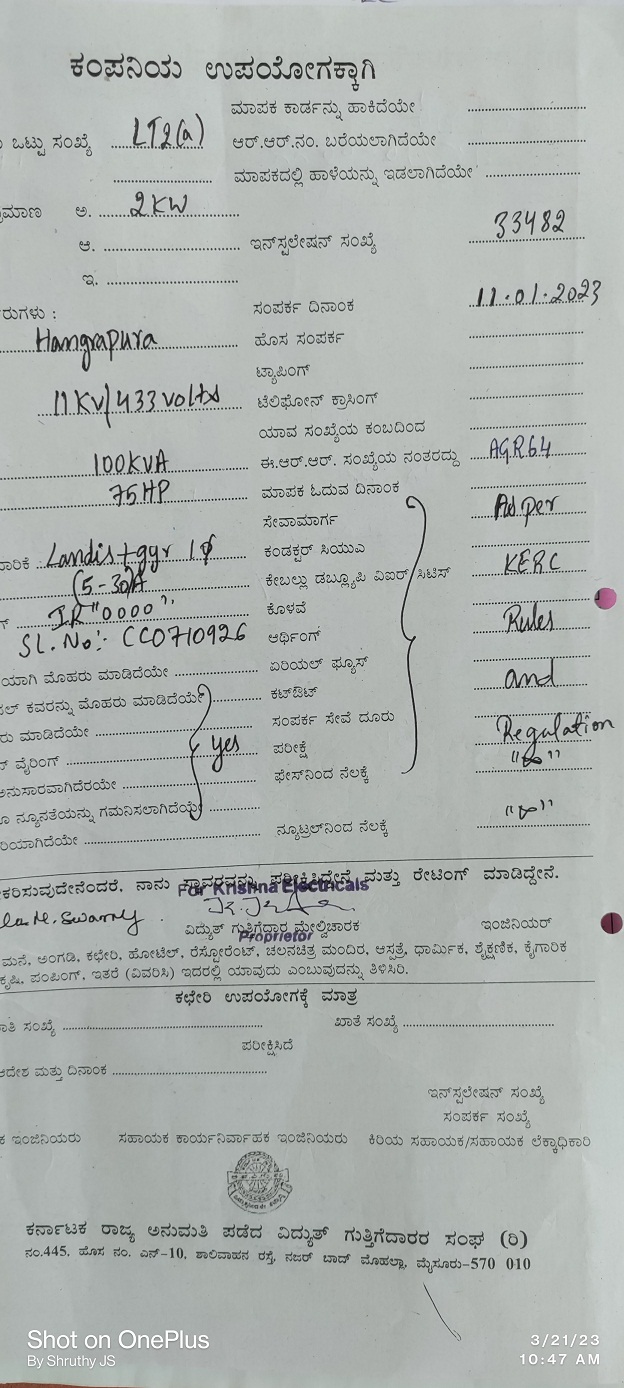 ಕಂಪನಿಯ ಉಪಯೋಗಕ್ಕಾಗಿ
ಮಾಪಕ ಕಾರ್ಡನ್ನು ಹಾಕಿದೆಯೇ
ಒಟ್ಟು ಸಂಖ್ಯೆ LT2(a) ಆರ್.ಆರ್.ನಂ. ಬರೆಯಲಾಗಿದೆಯೇ
ಮಾಪಕದಲ್ಲಿ ಹಾಳೆಯನ್ನು ಇಡಲಾಗಿದೆಯೇ
ಮಾಣ ಅ. 2KW
ಆ. ಇನ್‌ಸ್ಪಲೇಷನ್ ಸಂಖ್ಯೆ 33482
ಇ.
ರುಗಳು : ಸಂಪರ್ಕ ದಿನಾಂಕ 11.01.2023
Hangrapura ಹೊಸ ಸಂಪರ್ಕ
ಟ್ಯಾಪಿಂಗ್
11KV/433 volts ಟೆಲಿಫೋನ್ ಕ್ರಾಸಿಂಗ್
ಯಾವ ಸಂಖ್ಯೆಯ ಕಂಬದಿಂದ
100KVA ಈ.ಆರ್.ಆರ್. ಸಂಖ್ಯೆಯ ನಂತರದ್ದು AGR64
75HP ಮಾಪಕ ಓದುವ ದಿನಾಂಕ
ಸೇವಾಮಾರ್ಗ As per
ಾರಿಕೆ Landis+gyr 1ϕ ಕಂಡಕ್ಟರ್ ಸಿಯುಎ
(5-30)A ಕೇಬಲ್ಲು ಡಬ್ಲ್ಯೂಪಿ ವಿಐರ್ ಸಿಟಿಸ್ KERC
IR "0000" ಕೊಳವೆ
SL.No: CC0710926 ಆರ್ಥಿಂಗ್ Rules
ಯಾಗಿ ಮೊಹರು ಮಾಡಿದೆಯೇ ಏರಿಯಲ್ ಫ್ಯೂಸ್
ಲ್ ಕವರನ್ನು ಮೊಹರು ಮಾಡಿದೆಯೇ ಕಟ್‌ಔಟ್ and
ರು ಮಾಡಿದೆಯೇ ಸಂಪರ್ಕ ಸೇವೆ ದೂರು
ವೈರಿಂಗ್ yes ಪರೀಕ್ಷೆ Regulation
ಅನುಸಾರವಾಗಿದೆರಯೇ ಫೇಸ್‌ನಿಂದ ನೆಲಕ್ಕೆ "∞"
ನ್ಯೂನತೆಯನ್ನು ಗಮನಿಸಲಾಗಿದೆಯೆ
ರಿಯಾಗಿದೆಯೇ ನ್ಯೂಟ್ರಲ್‌ನಿಂದ ನೆಲಕ್ಕೆ "∞"
ಕರಿಸುವುದೇನೆಂದರೆ, ನಾನು ಸ್ಥಾವರವನ್ನು ಪರೀಕ್ಷಿಸಿದ್ದೇನೆ ಮತ್ತು ರೇಟಿಂಗ್ ಮಾಡಿದ್ದೇನೆ.
For Krishna Electricals
M. Swamy
ವಿದ್ಯುತ್ ಗುತ್ತಿಗೆದಾರ ಮೇಲ್ವಿಚಾರಕ ಇಂಜಿನಿಯರ್
Proprietor
ಮನೆ, ಅಂಗಡಿ, ಕಛೇರಿ, ಹೋಟೆಲ್, ರೆಸ್ಟೋರೆಂಟ್, ಚಲನಚಿತ್ರ ಮಂದಿರ, ಆಸ್ಪತ್ರೆ, ಧಾರ್ಮಿಕ, ಶೈಕ್ಷಣಿಕ, ಕೈಗಾರಿಕ
ಕೃಷಿ, ಪಂಪಿಂಗ್, ಇತರೆ (ವಿವರಿಸಿ) ಇದರಲ್ಲಿ ಯಾವುದು ಎಂಬುವುದನ್ನು ತಿಳಿಸಿರಿ.
ಕಛೇರಿ ಉಪಯೋಗಕ್ಕೆ ಮಾತ್ರ
ಸಂಖ್ಯೆ ಖಾತೆ ಸಂಖ್ಯೆ
ಪರೀಕ್ಷಿಸಿದೆ
ಆದೇಶ ಮತ್ತು ದಿನಾಂಕ
ಇನ್‌ಸ್ಪಲೇಷನ್ ಸಂಖ್ಯೆ
ಸಂಪರ್ಕ ಸಂಖ್ಯೆ
ಕ ಇಂಜಿನಿಯರು ಸಹಾಯಕ ಕಾರ್ಯನಿರ್ವಾಹಕ ಇಂಜಿನಿಯರು ಕಿರಿಯ ಸಹಾಯಕ/ಸಹಾಯಕ ಲೆಕ್ಕಾಧಿಕಾರಿ
ಕರ್ನಾಟಕ ರಾಜ್ಯ ಅನುಮತಿ ಪಡೆದ ವಿದ್ಯುತ್ ಗುತ್ತಿಗೆದಾರರ ಸಂಘ (ರಿ)
ನಂ.445, ಹೊಸ ನಂ. ಎನ್-10, ಶಾಲಿವಾಹನ ರಸ್ತೆ, ನಜರ್ ಬಾದ್ ಮೊಹಲ್ಲಾ, ಮೈಸೂರು-570 010
Shot on OnePlus 3/21/23
By Shruthy JS 10:47 AM